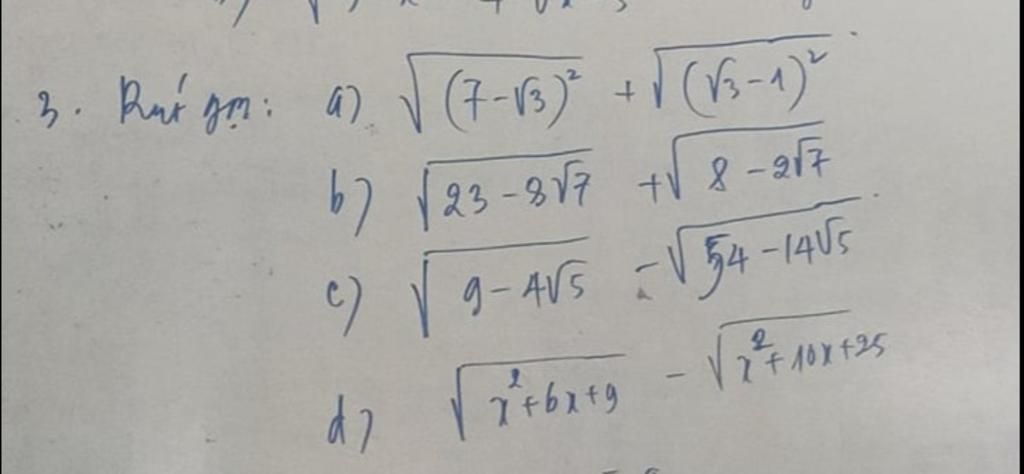 3. Rút gọn: a) √(7-√3)² + √(√3-1)²
b) √23-8√7 + √8-2√7
c) √9-4√5 - √54-14√5
d) √x²+6x+9 - √x²+10x+25